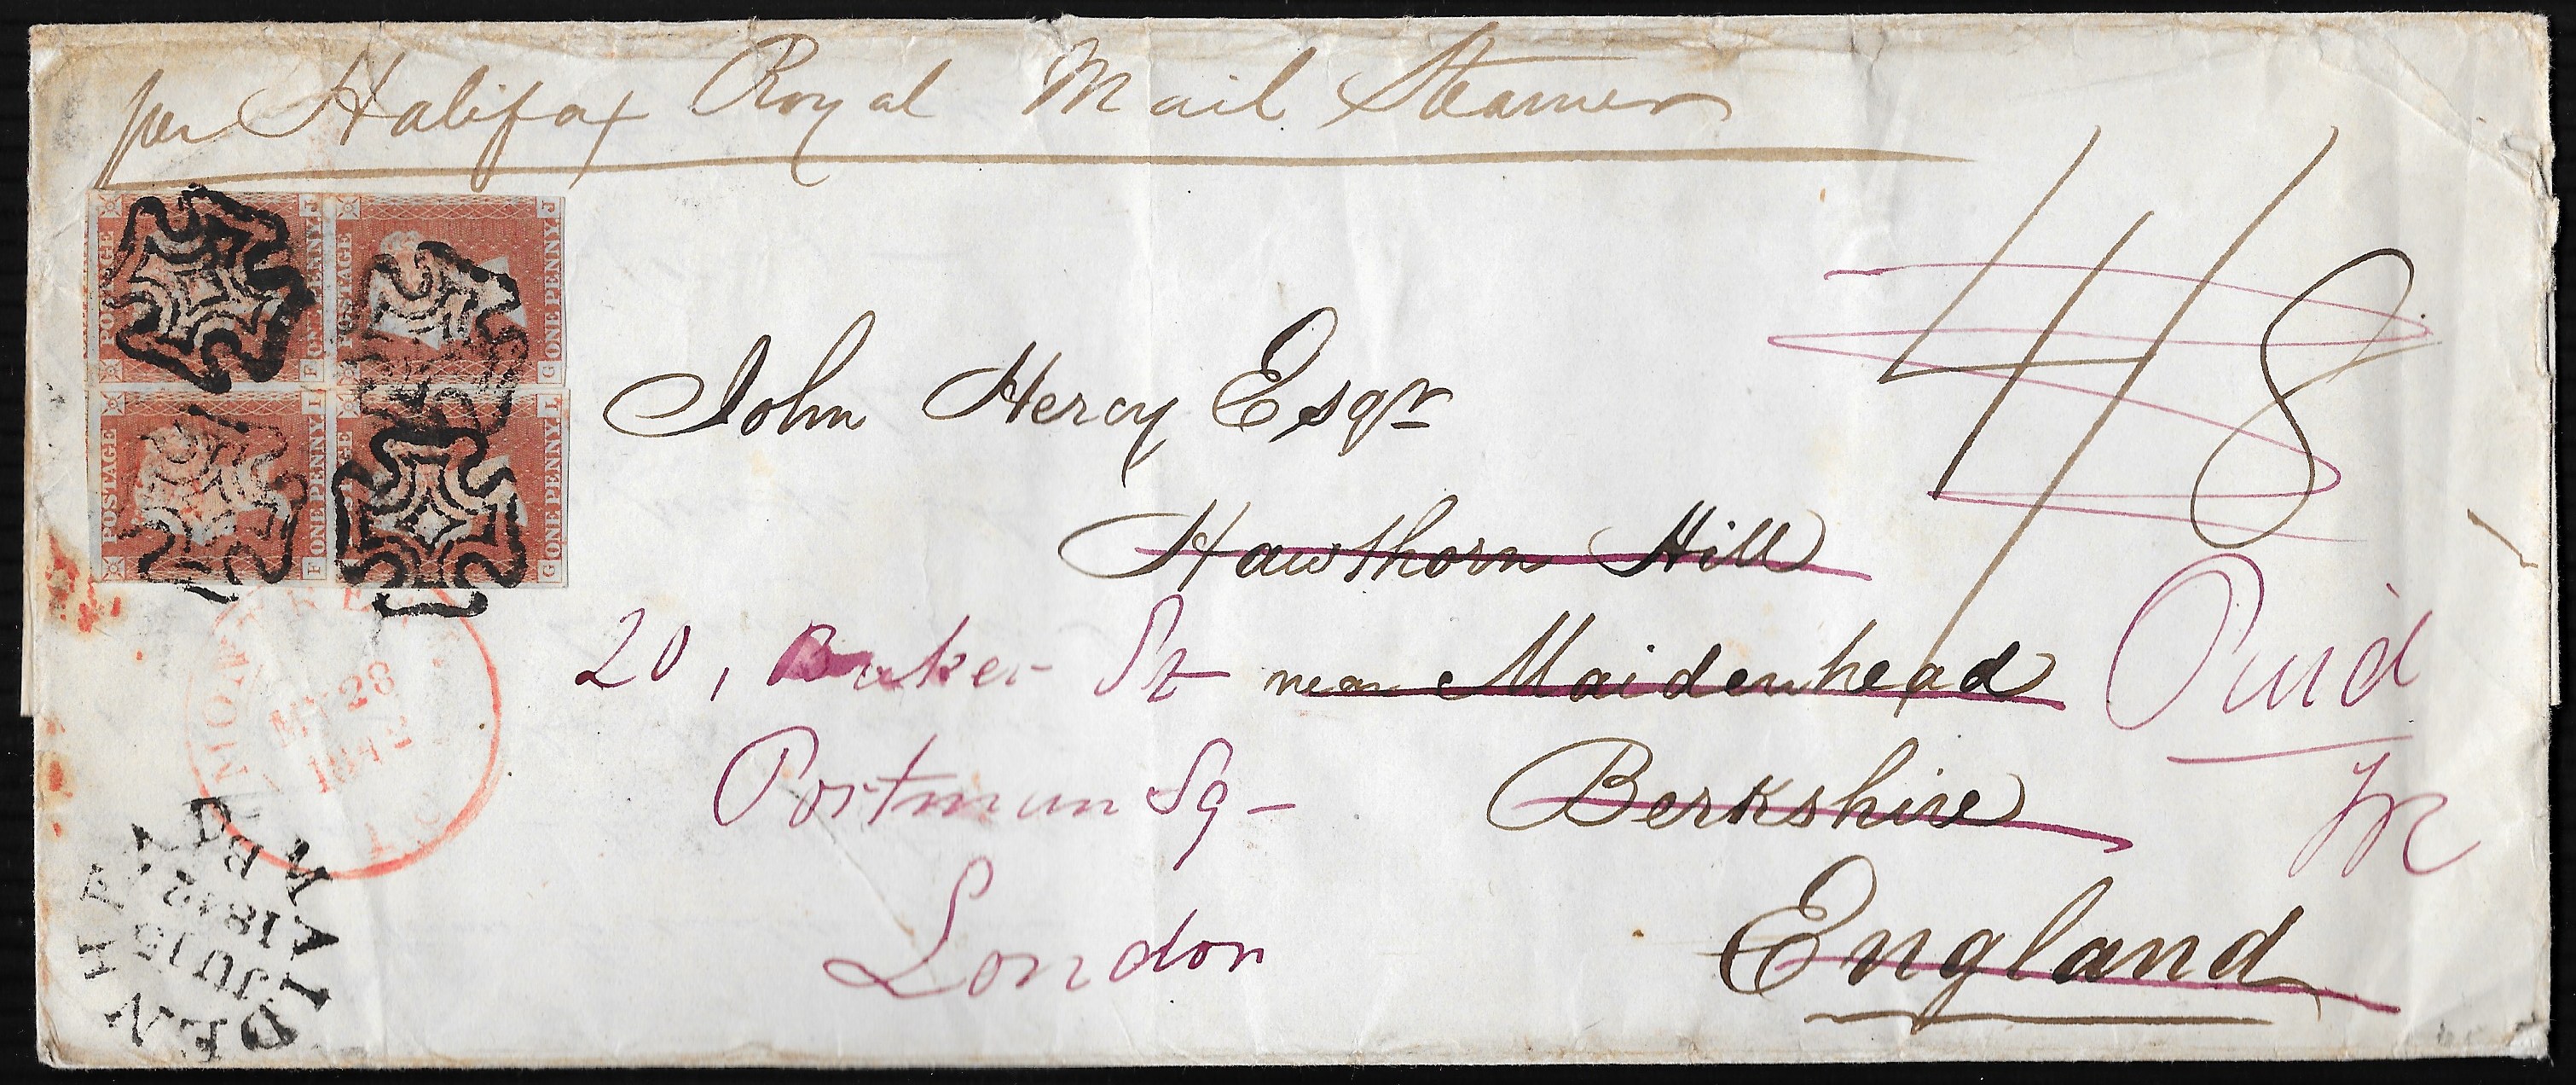 per Halifax Royal Mail Steamer
4/8
POSTAGE
ONE PENNY
J
F
POSTAGE
ONE PENNY
J
G
POSTAGE
ONE PENNY
G
F
I
ONE PENNY
L
G
John Hercy Esqr
Hawthorn Hill
20, Baker St near Maidenhead Paid
Portman Sq Berkshire
London
England
MONTREAL
MY 28
1842
L.C.
MAIDENHEAD
JU 15
1842